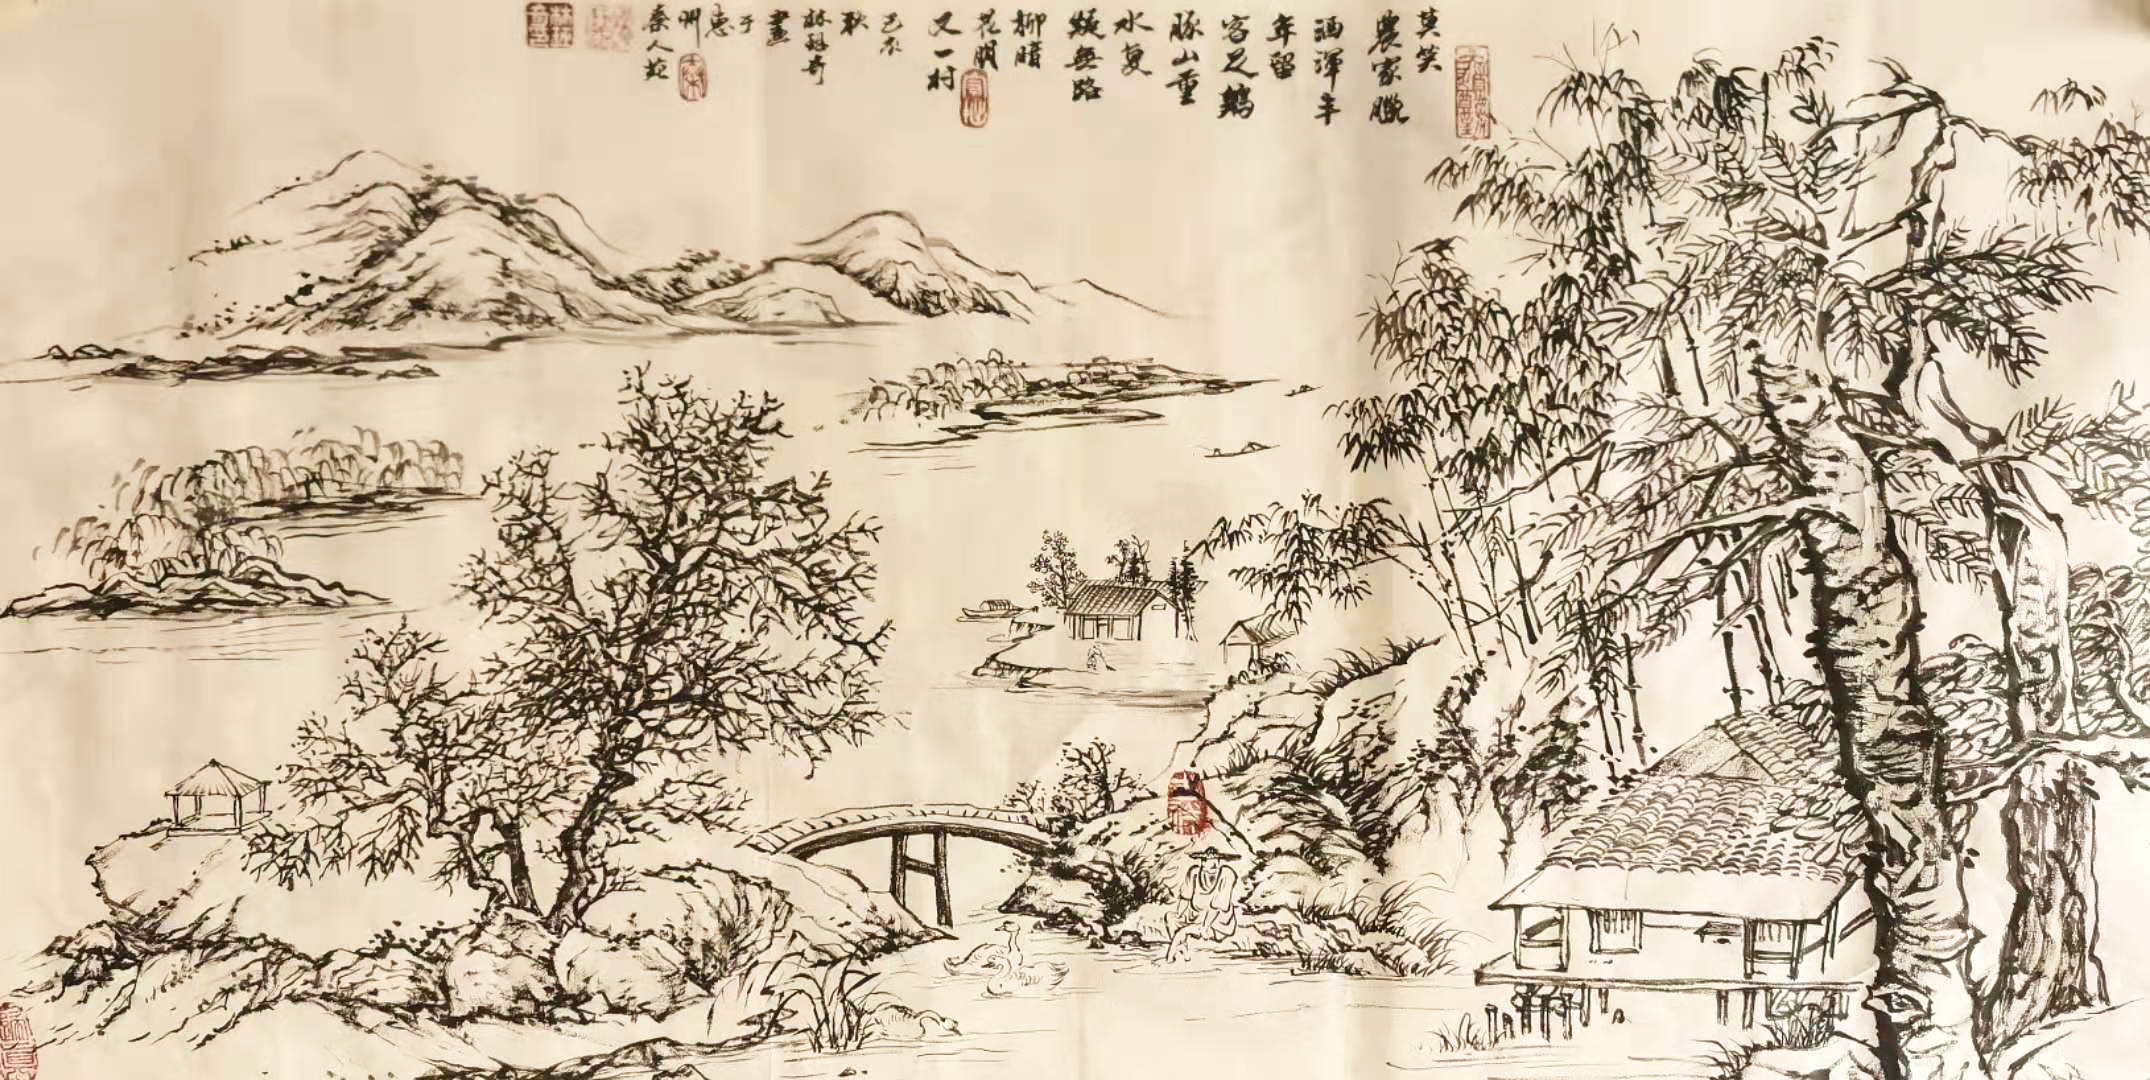 莫笑
農家臘
酒渾丰
年留
客足鷄
豚山重
水复
疑無路
柳暗
花明
又一村
己亥
秋
林奇
畫
于
惠
州
秦人苑